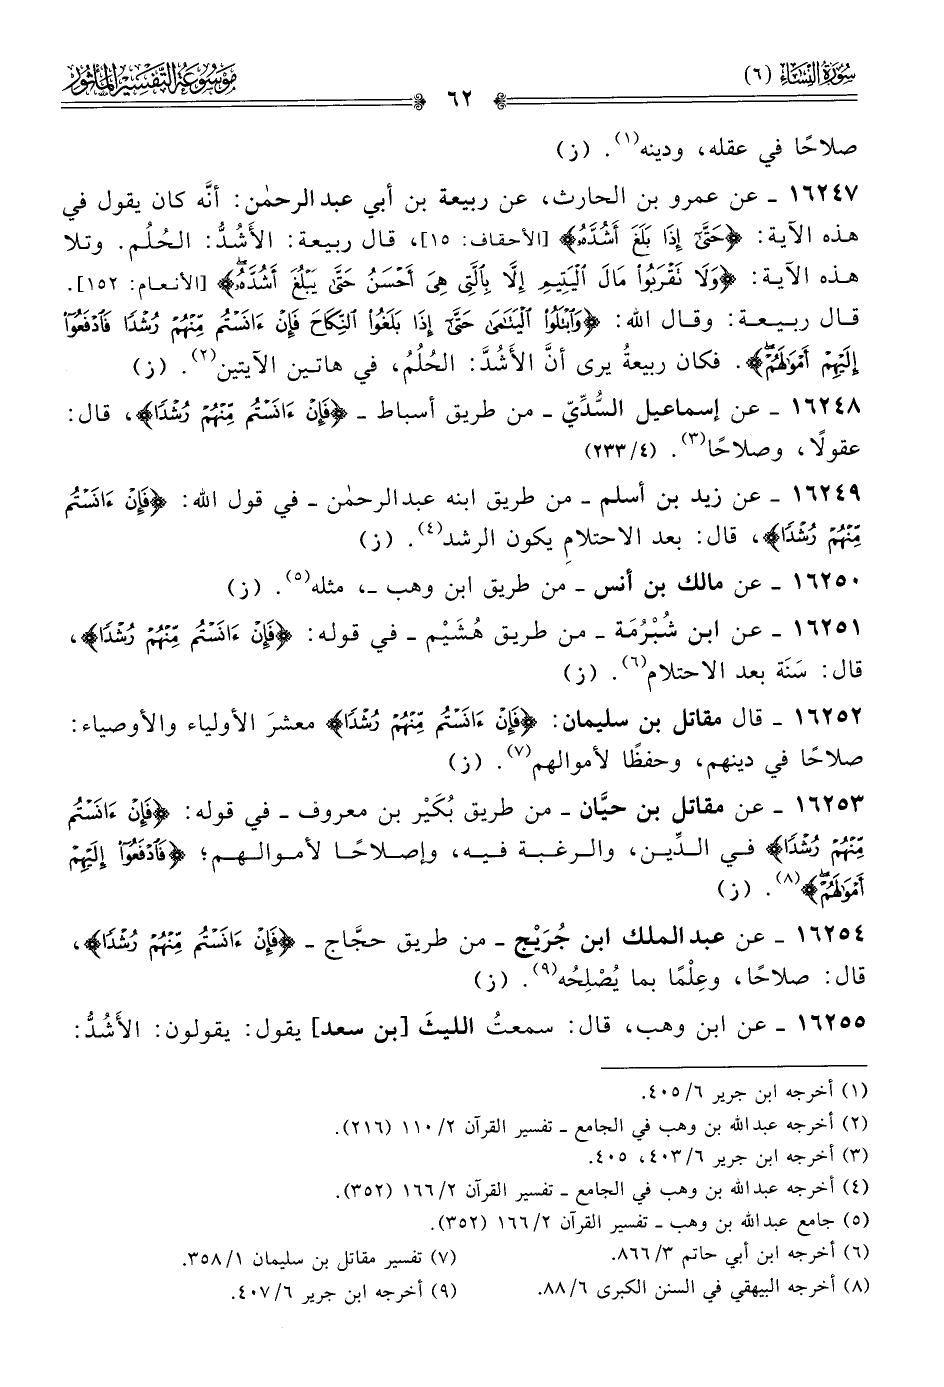 سُورَةُ النِّسَاء (٦)
٦٢
مَوْسُوعَةُ التَّفْسِيرِ المَأْثُور
صلاحًا في عقله، ودينه(١). (ز)
١٦٢٤٧ ـ عن عمرو بن الحارث، عن ربيعة بن أبي عبدالرحمٰن: أنَّه كان يقول في
هذه الآية: ﴿حَتَّىٰٓ إِذَا بَلَغَ أَشُدَّهُۥ﴾ [الأحقاف: ١٥]، قال ربيعة: الأَشُدُّ: الحُلُم. وتلا
هذه الآية: ﴿وَلَا نَقۡرَبُواْ مَالَ ٱلۡيَتِيمِ إِلَّا بِٱلَّتِي هِيَ أَحۡسَنُ حَتَّىٰ يَبۡلُغَ أَشُدَّهُۥۖ﴾ [الأنعام: ١٥٢].
قال ربيعة: وقال الله: ﴿وَٱبۡتَلُواْ ٱلۡيَتَٰمَىٰ حَتَّىٰٓ إِذَا بَلَغُواْ ٱلنِّكَاحَ فَإِنۡ ءَانَسۡتُم مِّنۡهُمۡ رُشۡدٗا فَٱدۡفَعُوٓاْ
إِلَيۡهِمۡ أَمۡوَٰلَهُمۡۖ﴾. فكان ربيعةُ يرى أنَّ الأَشُدَّ: الحُلُمُ، في هاتين الآيتين(٢). (ز)
١٦٢٤٨ ـ عن إسماعيل السُّدِّيّ ـ من طريق أسباط ـ ﴿فَإِنۡ ءَانَسۡتُم مِّنۡهُمۡ رُشۡدٗا﴾، قال:
عقولًا، وصلاحًا(٣). (٤/ ٢٣٣)
١٦٢٤٩ ـ عن زيد بن أسلم ـ من طريق ابنه عبدالرحمٰن ـ في قول الله: ﴿فَإِنۡ ءَانَسۡتُم
مِّنۡهُمۡ رُشۡدٗا﴾، قال: بعد الاحتلامِ يكون الرشد(٤). (ز)
١٦٢٥٠ ـ عن مالك بن أنس ـ من طريق ابن وهب ـ، مثله(٥). (ز)
١٦٢٥١ ـ عن ابن شُبْرُمَة ـ من طريق هُشَيْم ـ في قوله: ﴿فَإِنۡ ءَانَسۡتُم مِّنۡهُمۡ رُشۡدٗا﴾،
قال: سَنَة بعد الاحتلام(٦). (ز)
١٦٢٥٢ ـ قال مقاتل بن سليمان: ﴿فَإِنۡ ءَانَسۡتُم مِّنۡهُمۡ رُشۡدٗا﴾ معشرَ الأولياء والأوصياء:
صلاحًا في دينهم، وحفظًا لأموالهم(٧). (ز)
١٦٢٥٣ ـ عن مقاتل بن حيَّان ـ من طريق بُكَيْر بن معروف ـ في قوله: ﴿فَإِنۡ ءَانَسۡتُم
مِّنۡهُمۡ رُشۡدٗا﴾ في الدِّين، والرغبة فيه، وإصلاحًا لأموالهم؛ ﴿فَٱدۡفَعُوٓاْ إِلَيۡهِمۡ
أَمۡوَٰلَهُمۡۖ﴾(٨). (ز)
١٦٢٥٤ ـ عن عبدالملك ابن جُرَيْج ـ من طريق حجَّاج ـ ﴿فَإِنۡ ءَانَسۡتُم مِّنۡهُمۡ رُشۡدٗا﴾،
قال: صلاحًا، وعِلْمًا بما يُصْلِحُه(٩). (ز)
١٦٢٥٥ ـ عن ابن وهب، قال: سمعتُ الليثَ [بن سعد] يقول: يقولون: الأَشُدُّ:
(١) أخرجه ابن جرير ٦/ ٤٠٥.
(٢) أخرجه عبدالله بن وهب في الجامع ـ تفسير القرآن ٢/ ١١٠ (٢١٦).
(٣) أخرجه ابن جرير ٦/ ٤٠٣، ٤٠٥.
(٤) أخرجه عبدالله بن وهب في الجامع ـ تفسير القرآن ٢/ ١٦٦ (٣٥٢).
(٥) جامع عبدالله بن وهب ـ تفسير القرآن ٢/ ١٦٦ (٣٥٢).
(٦) أخرجه ابن أبي حاتم ٣/ ٨٦٦. (٧) تفسير مقاتل بن سليمان ١/ ٣٥٨.
(٨) أخرجه البيهقي في السنن الكبرى ٦/ ٨٨. (٩) أخرجه ابن جرير ٦/ ٤٠٧.